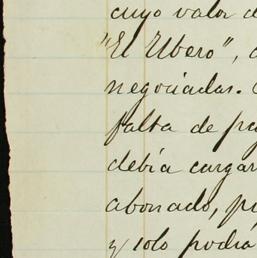 cuyo valor d
"El Ubero", 
negociadas.
falta de pa
debía cargar
abonado, p
y solo podía